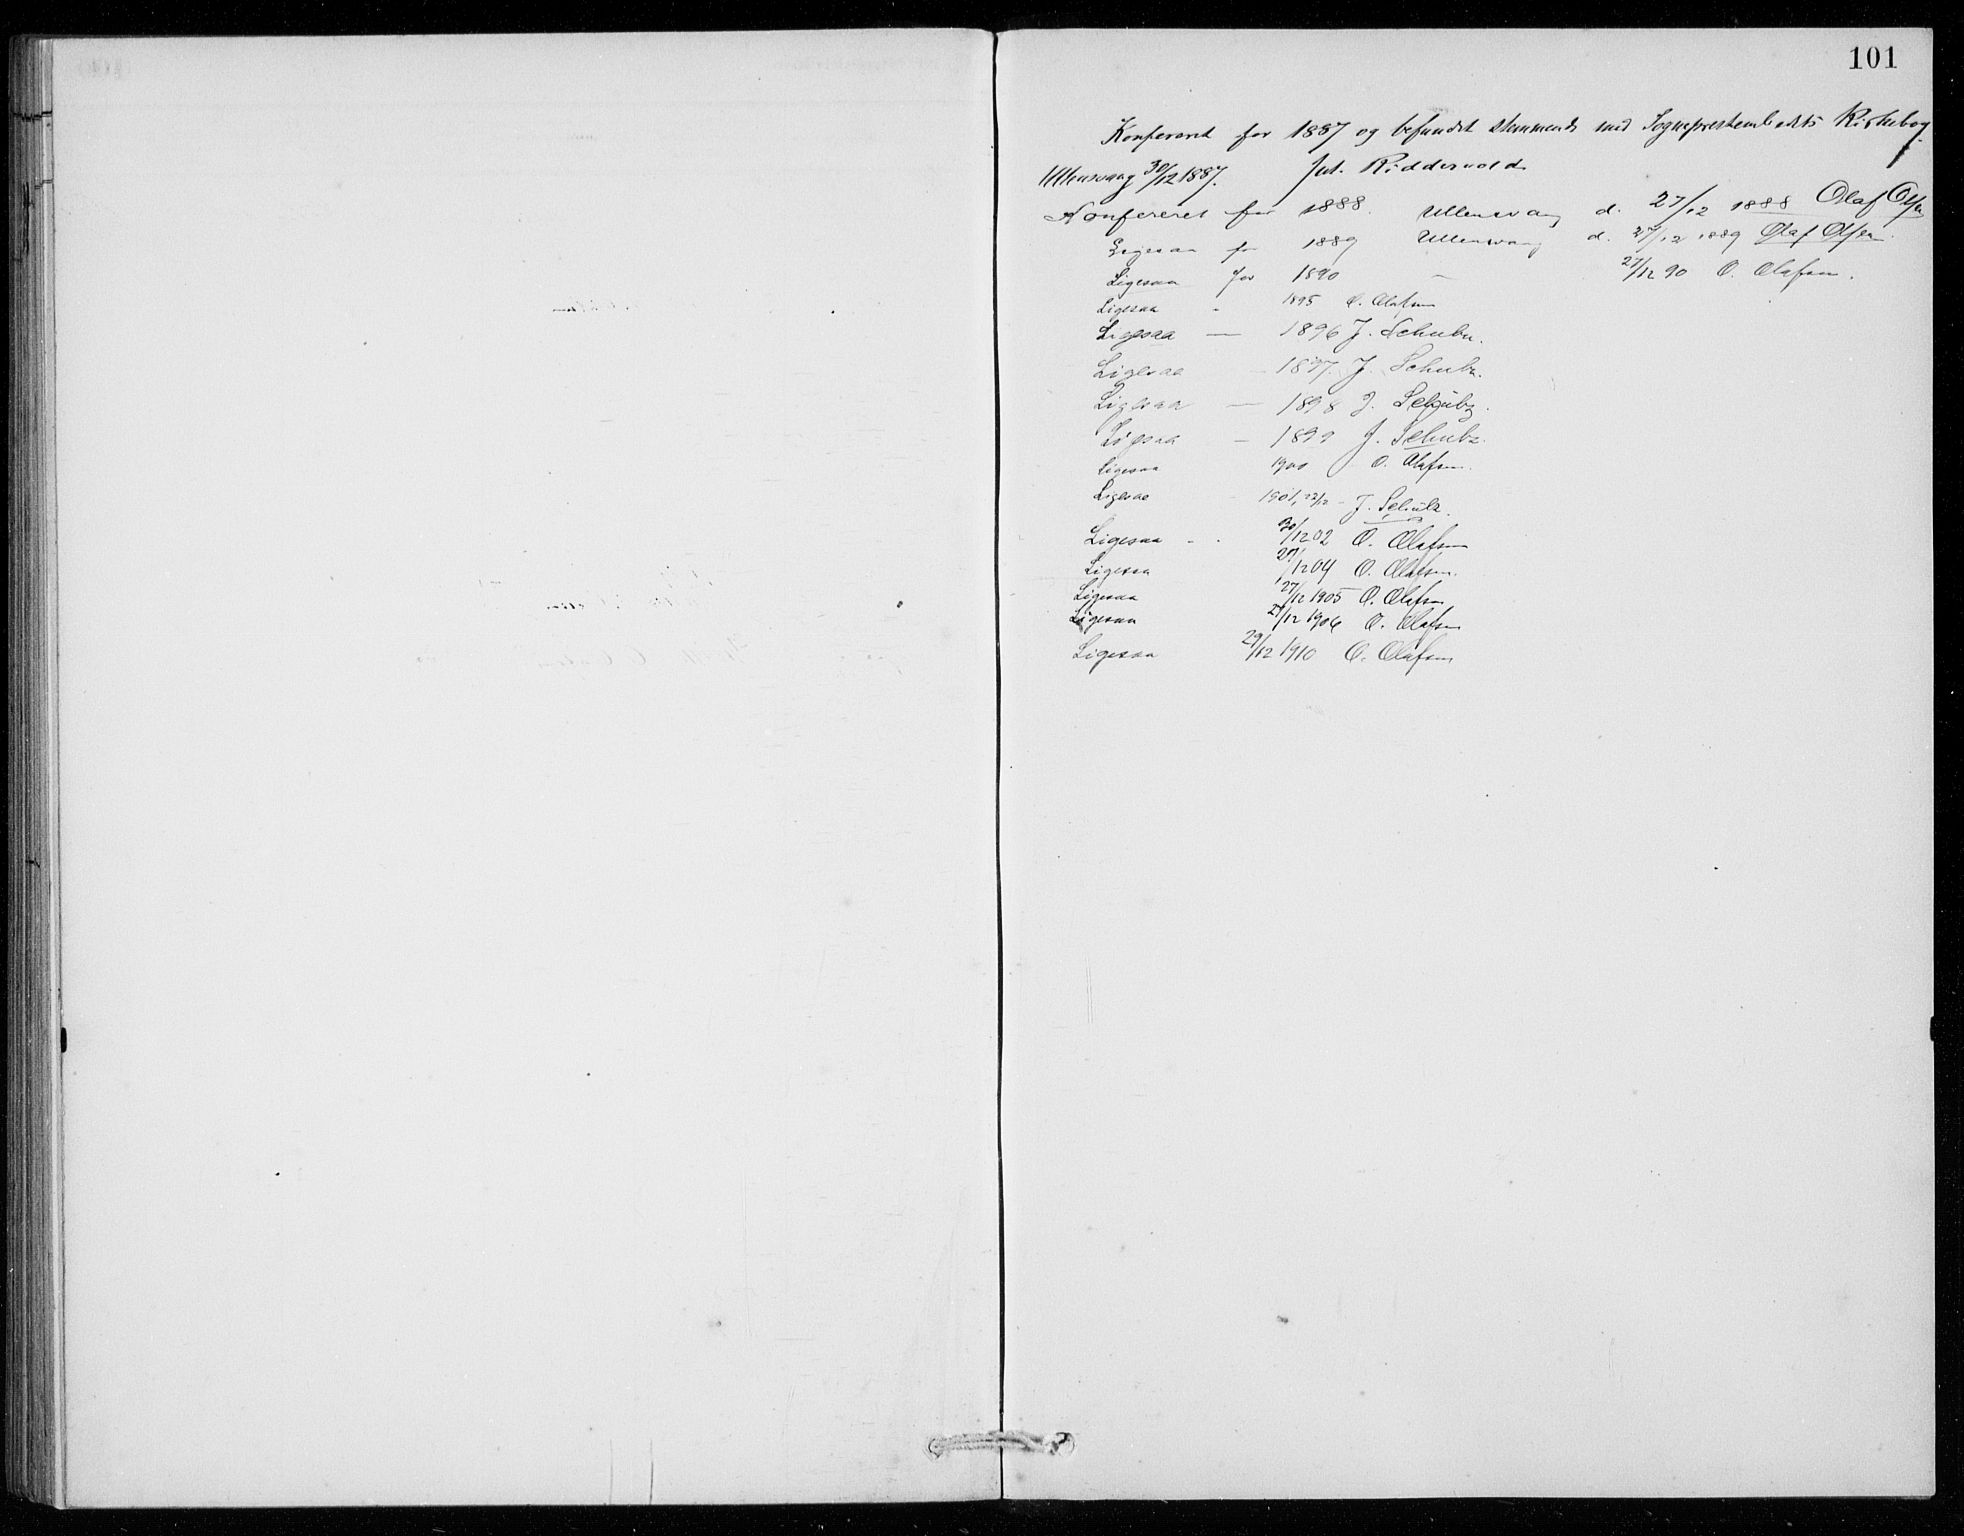 101
Konfereret for 1887 og befundet stemmende med Sogneprestembedets Kirkebog.
Ullensvang 30/12 1887. Jul. Riddervold
Konfereret for 1888. Ullensvang d. 27/12 1888 Olaf Olsen
Ligesaa for 1889 Ullensvang d. 27/12 1889 Olaf Olsen.
Ligesaa for 1890 - 27/12 90 O. Olafsen.
Ligesaa - 1895 O. Olafsen
Ligesaa — 1896 J. Schulz.
Ligesaa - 1897. J. Schulz.
Ligesaa — 1898 J. Schulz.
Ligesaa - 1899 J. Schulz.
Ligesaa 1900 O. Olafsen.
Ligesaa - 1901, 23/12 - J. Schulz.
Ligesaa - - 30/12 02 O. Olafsen
Ligesaa /12 04 O. Olafsen.
Ligesaa 27/12 1905 O. Olafsen
Ligesaa /12 1906 O. Olafsen
Ligesaa 29/12 1910 O. Olafsen